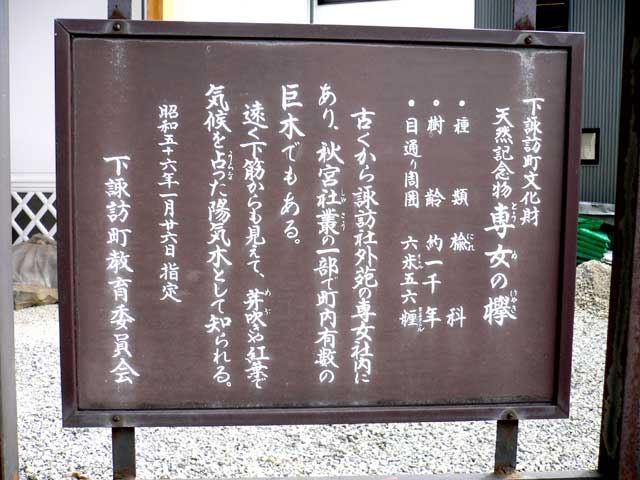 下諏訪町文化財
天然記念物 専女の欅
・種類 楡科
・樹齢 約一千年
・目通り周囲 六米五六糎
古くから諏訪社外苑の専女社内に
あり、秋宮社叢の一部で町内有数の
巨木でもある。
遠く下筋からも見えて、芽吹きや紅葉で
気候を占った陽気木として知られる。
昭和五十六年一月廿六日 指定
下諏訪町教育委員会